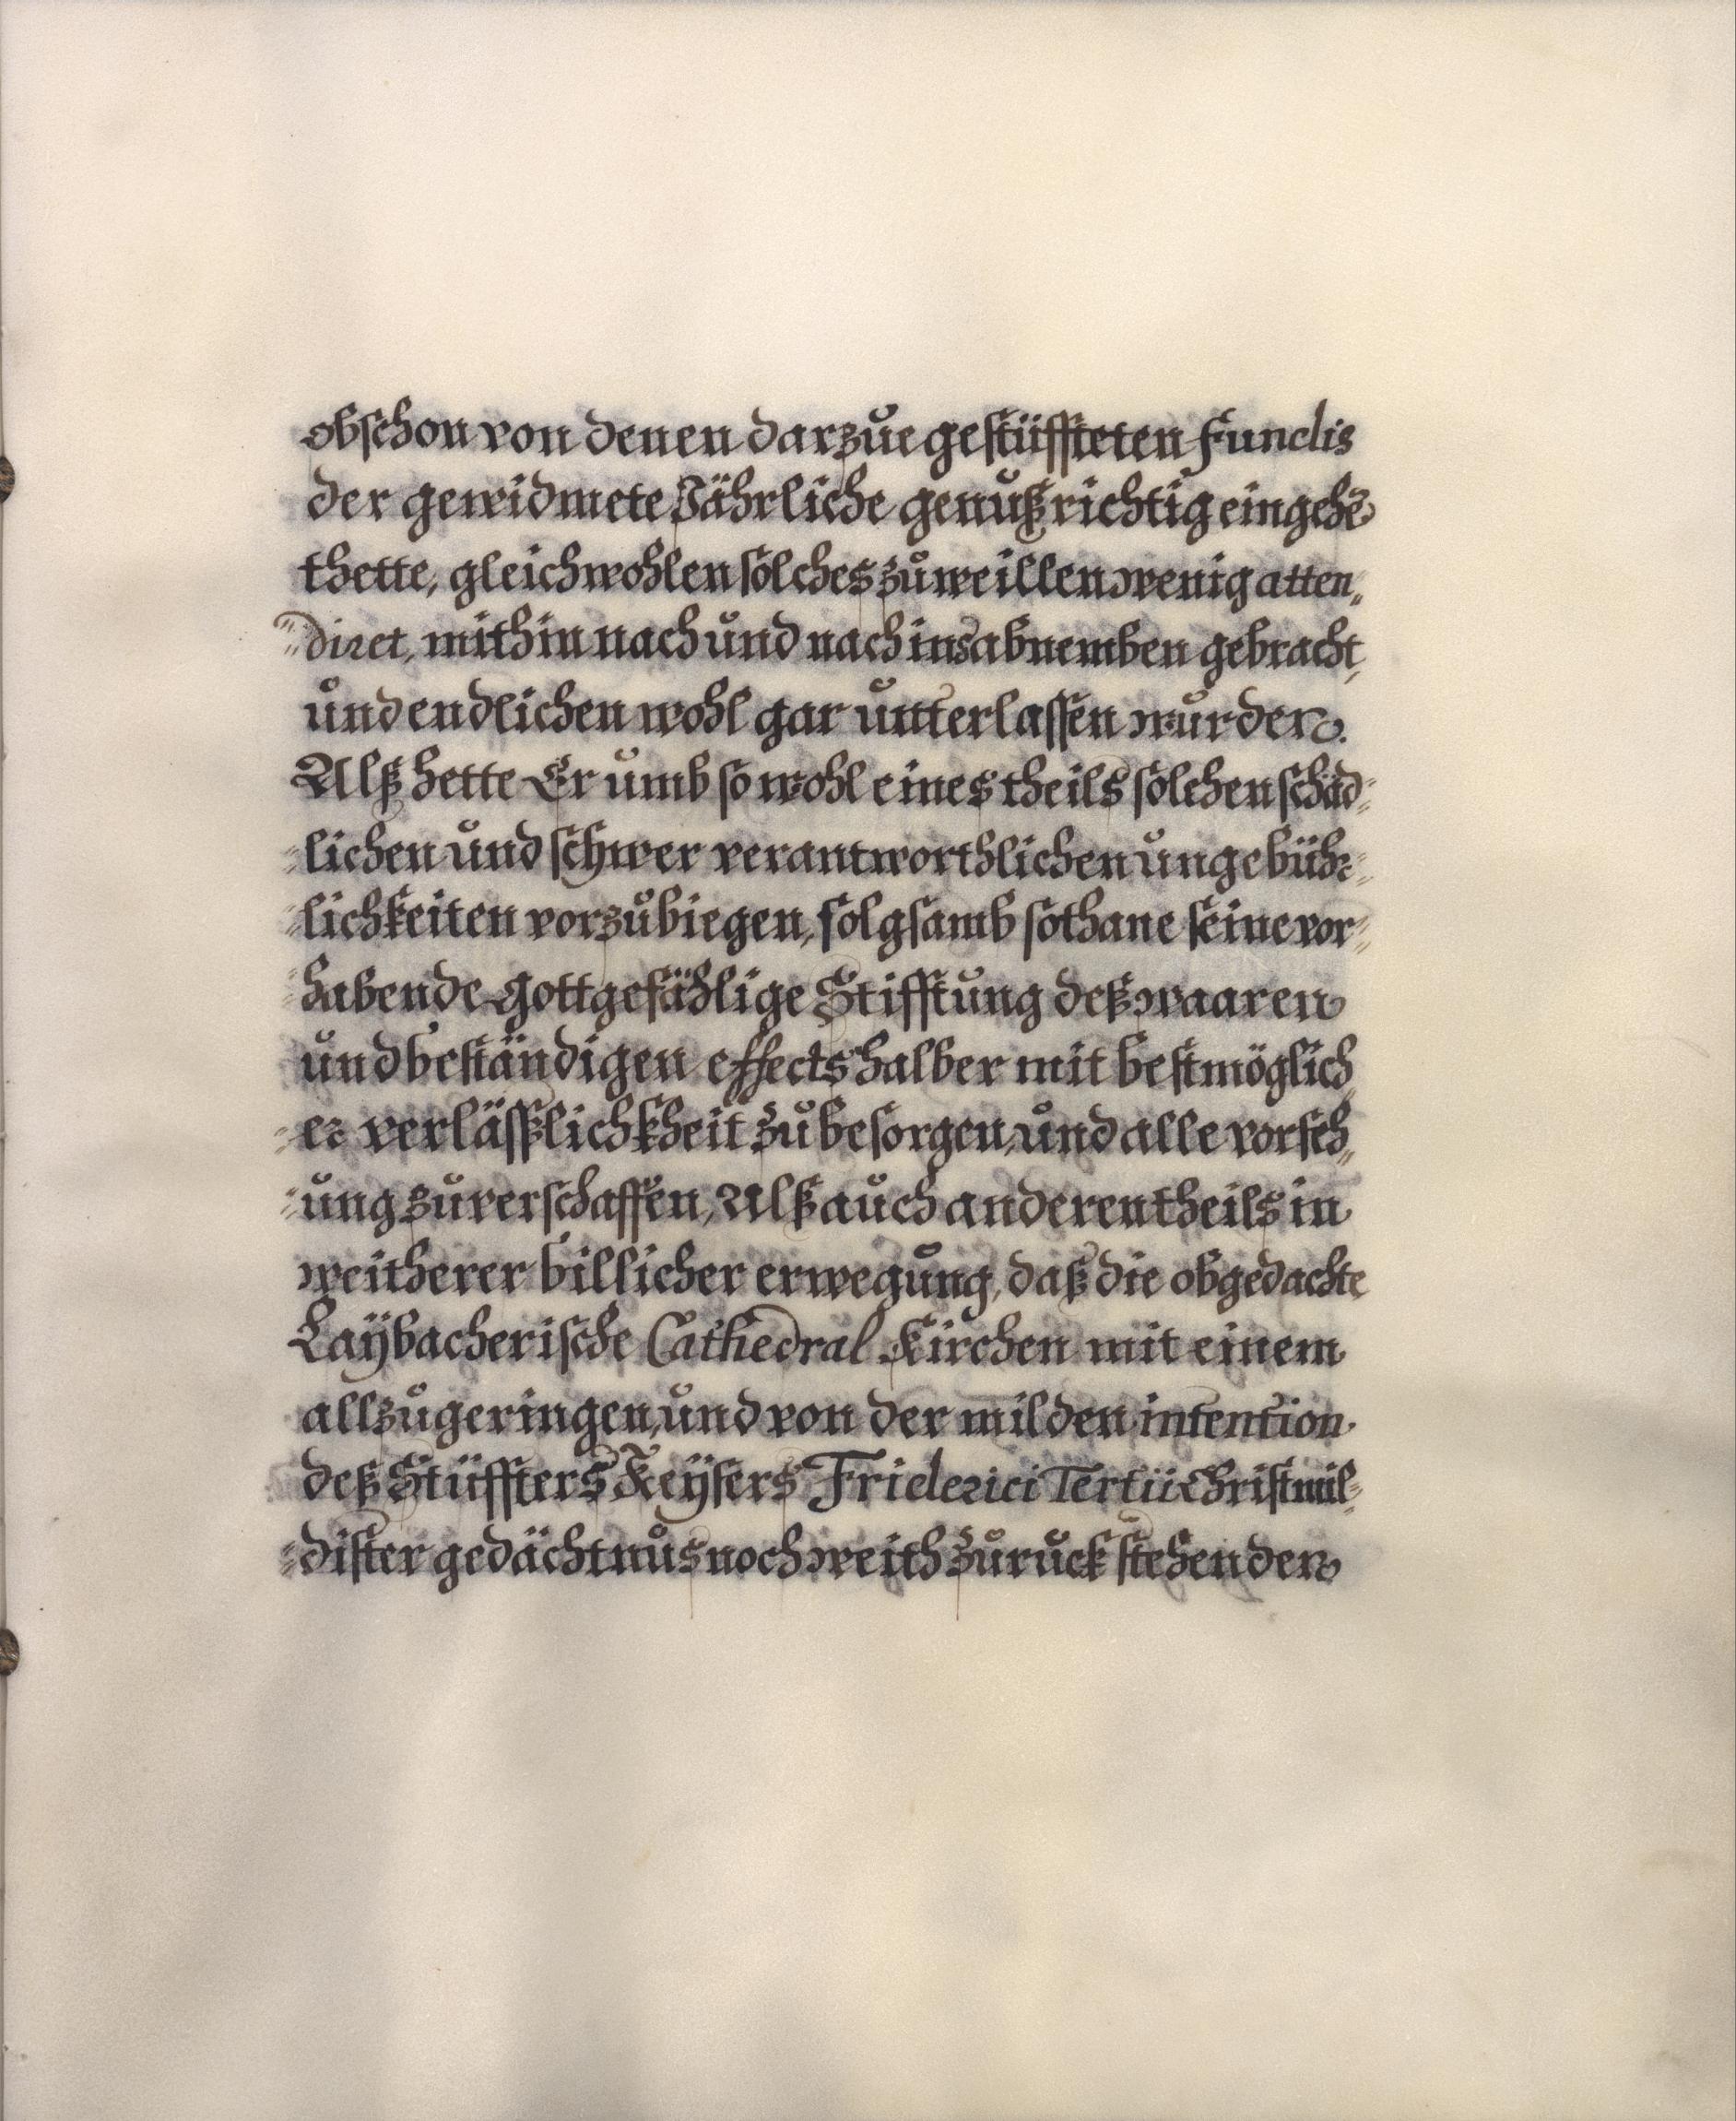 obschon von denen darzue gestüffteten Fundis
der gewidmete Jährliche genuß richtig eingehē
thette, gleichwohlen solches zuweillen wenig atten„
„diret, mithin nach und nach ins abnemben gebracht,
und endlichen wohl gar unterlassen wurden.
Alß hette Er umb so wohl eines theils solchen schäd=
=lichen und schwer verantworthlichen ungebühr=
=lichkeiten vorzubiegen, folgsamb sothane seine vor=
=habende gottgefählige Stifftung deß waaren
und beständigen effects halber mit bestmöglich„
=er verläßlichkheit zu besorgen, und alle vorseh„
=ung zuverschaffen, Alß auch anderentheils in
weitherer billicher erwegung, daß die obgedachte
Laÿbacherische Cathedral Kirchen mit einem
allzugeringen, und von der milden intention
deß Stüffters Keÿsers Friderici Tertii Christmil=
=dister gedächtnus noch weith zuruck stehenden